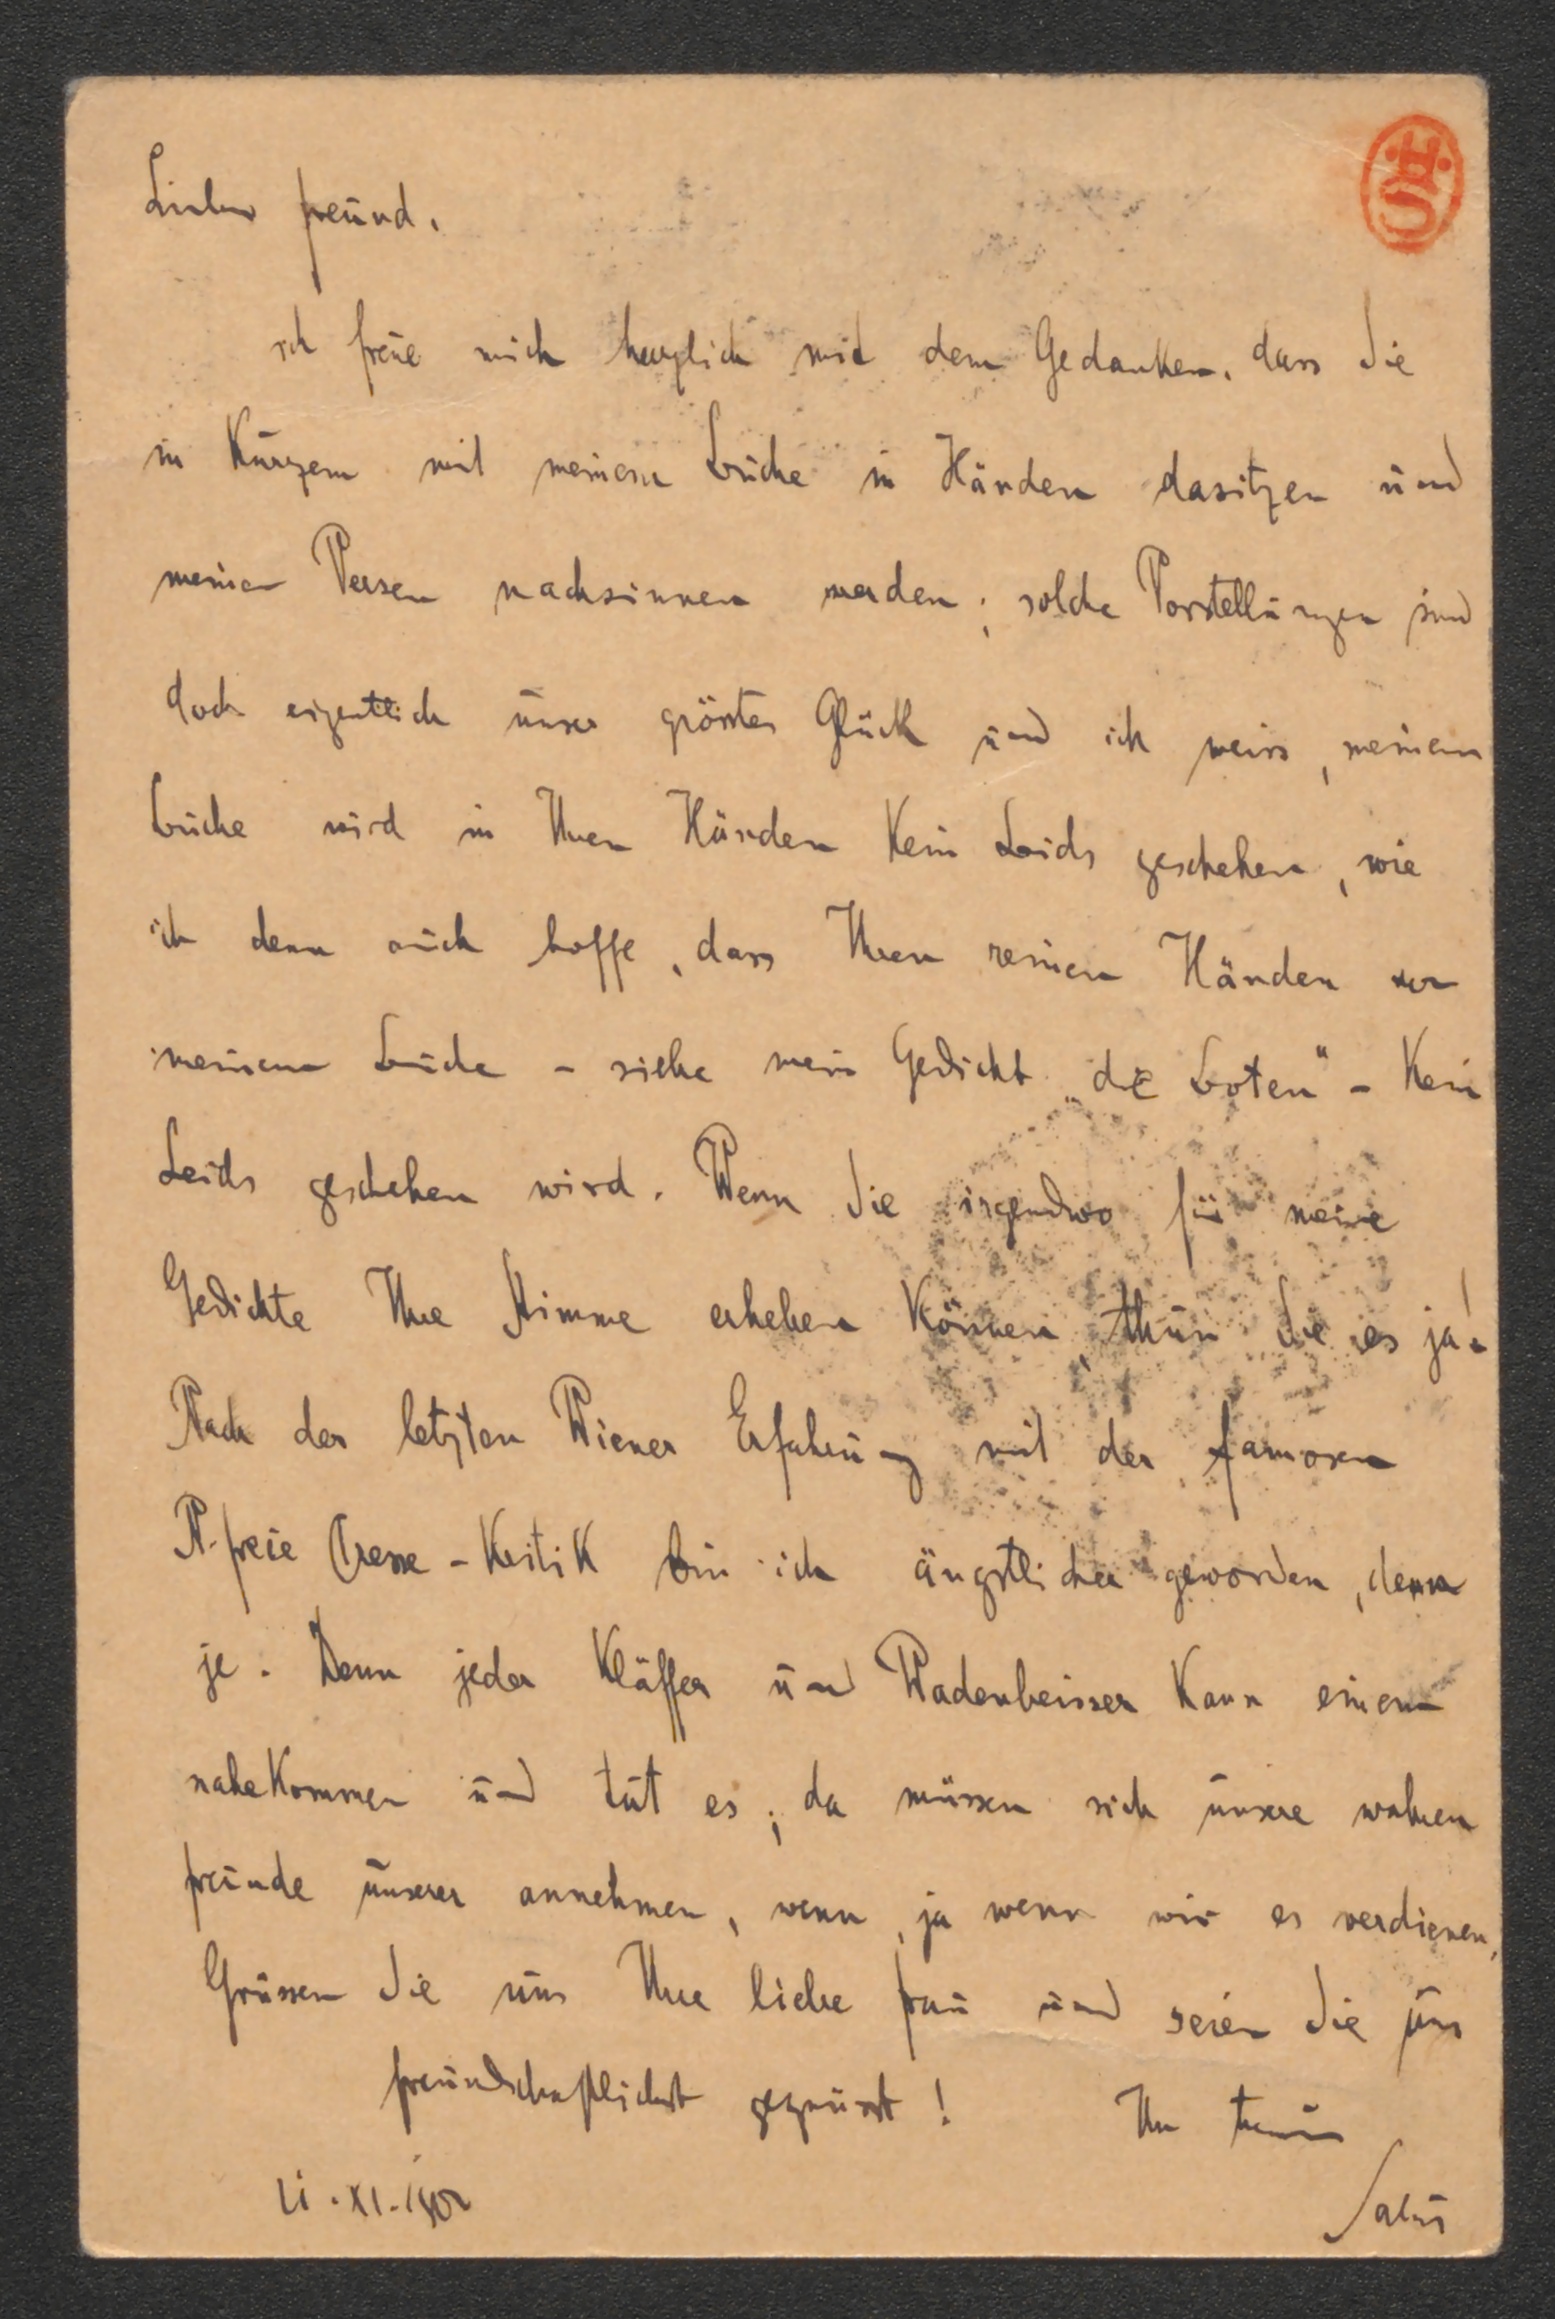 Lieber Freund,
ich freue mich herzlich mit dem Gedanken, dass Sie
in Kurzem mit meinem Buche in Händen dasitzen und
meinen Versen nachsinnen werden; solche Vorstellungen sind
doch eigentlich unser grösstes Glück und ich weiss, meinem
Buche wird in Ihren Händen kein Leids geschehen, wie
ich denn auch hoffe, dass Ihren reinen Händen von
meinem Buche - siehe mein Gedicht „die Boten" - kein
Leids geschehen wird. Wenn Sie irgendwo für meine
Gedichte Ihre Stimme erheben können, thun Sie es ja!
Nach der letzten Wiener Erfahrung mit der famosen
N. freie Presse-Kritik bin ich ängstlicher geworden, denn
je. Denn jeder Kläffer und Wadenbeisser kann einem
nahe kommen und tut es; da müssen sich unsere wahren
Freunde unserer annehmen, wenn, ja wenn wir es verdienen.
Grüssen Sie uns Ihre liebe Frau und seien Sie uns
freundschaftlichst gegrüsst! Ihr treuer
XI. 1902 Salus
HS